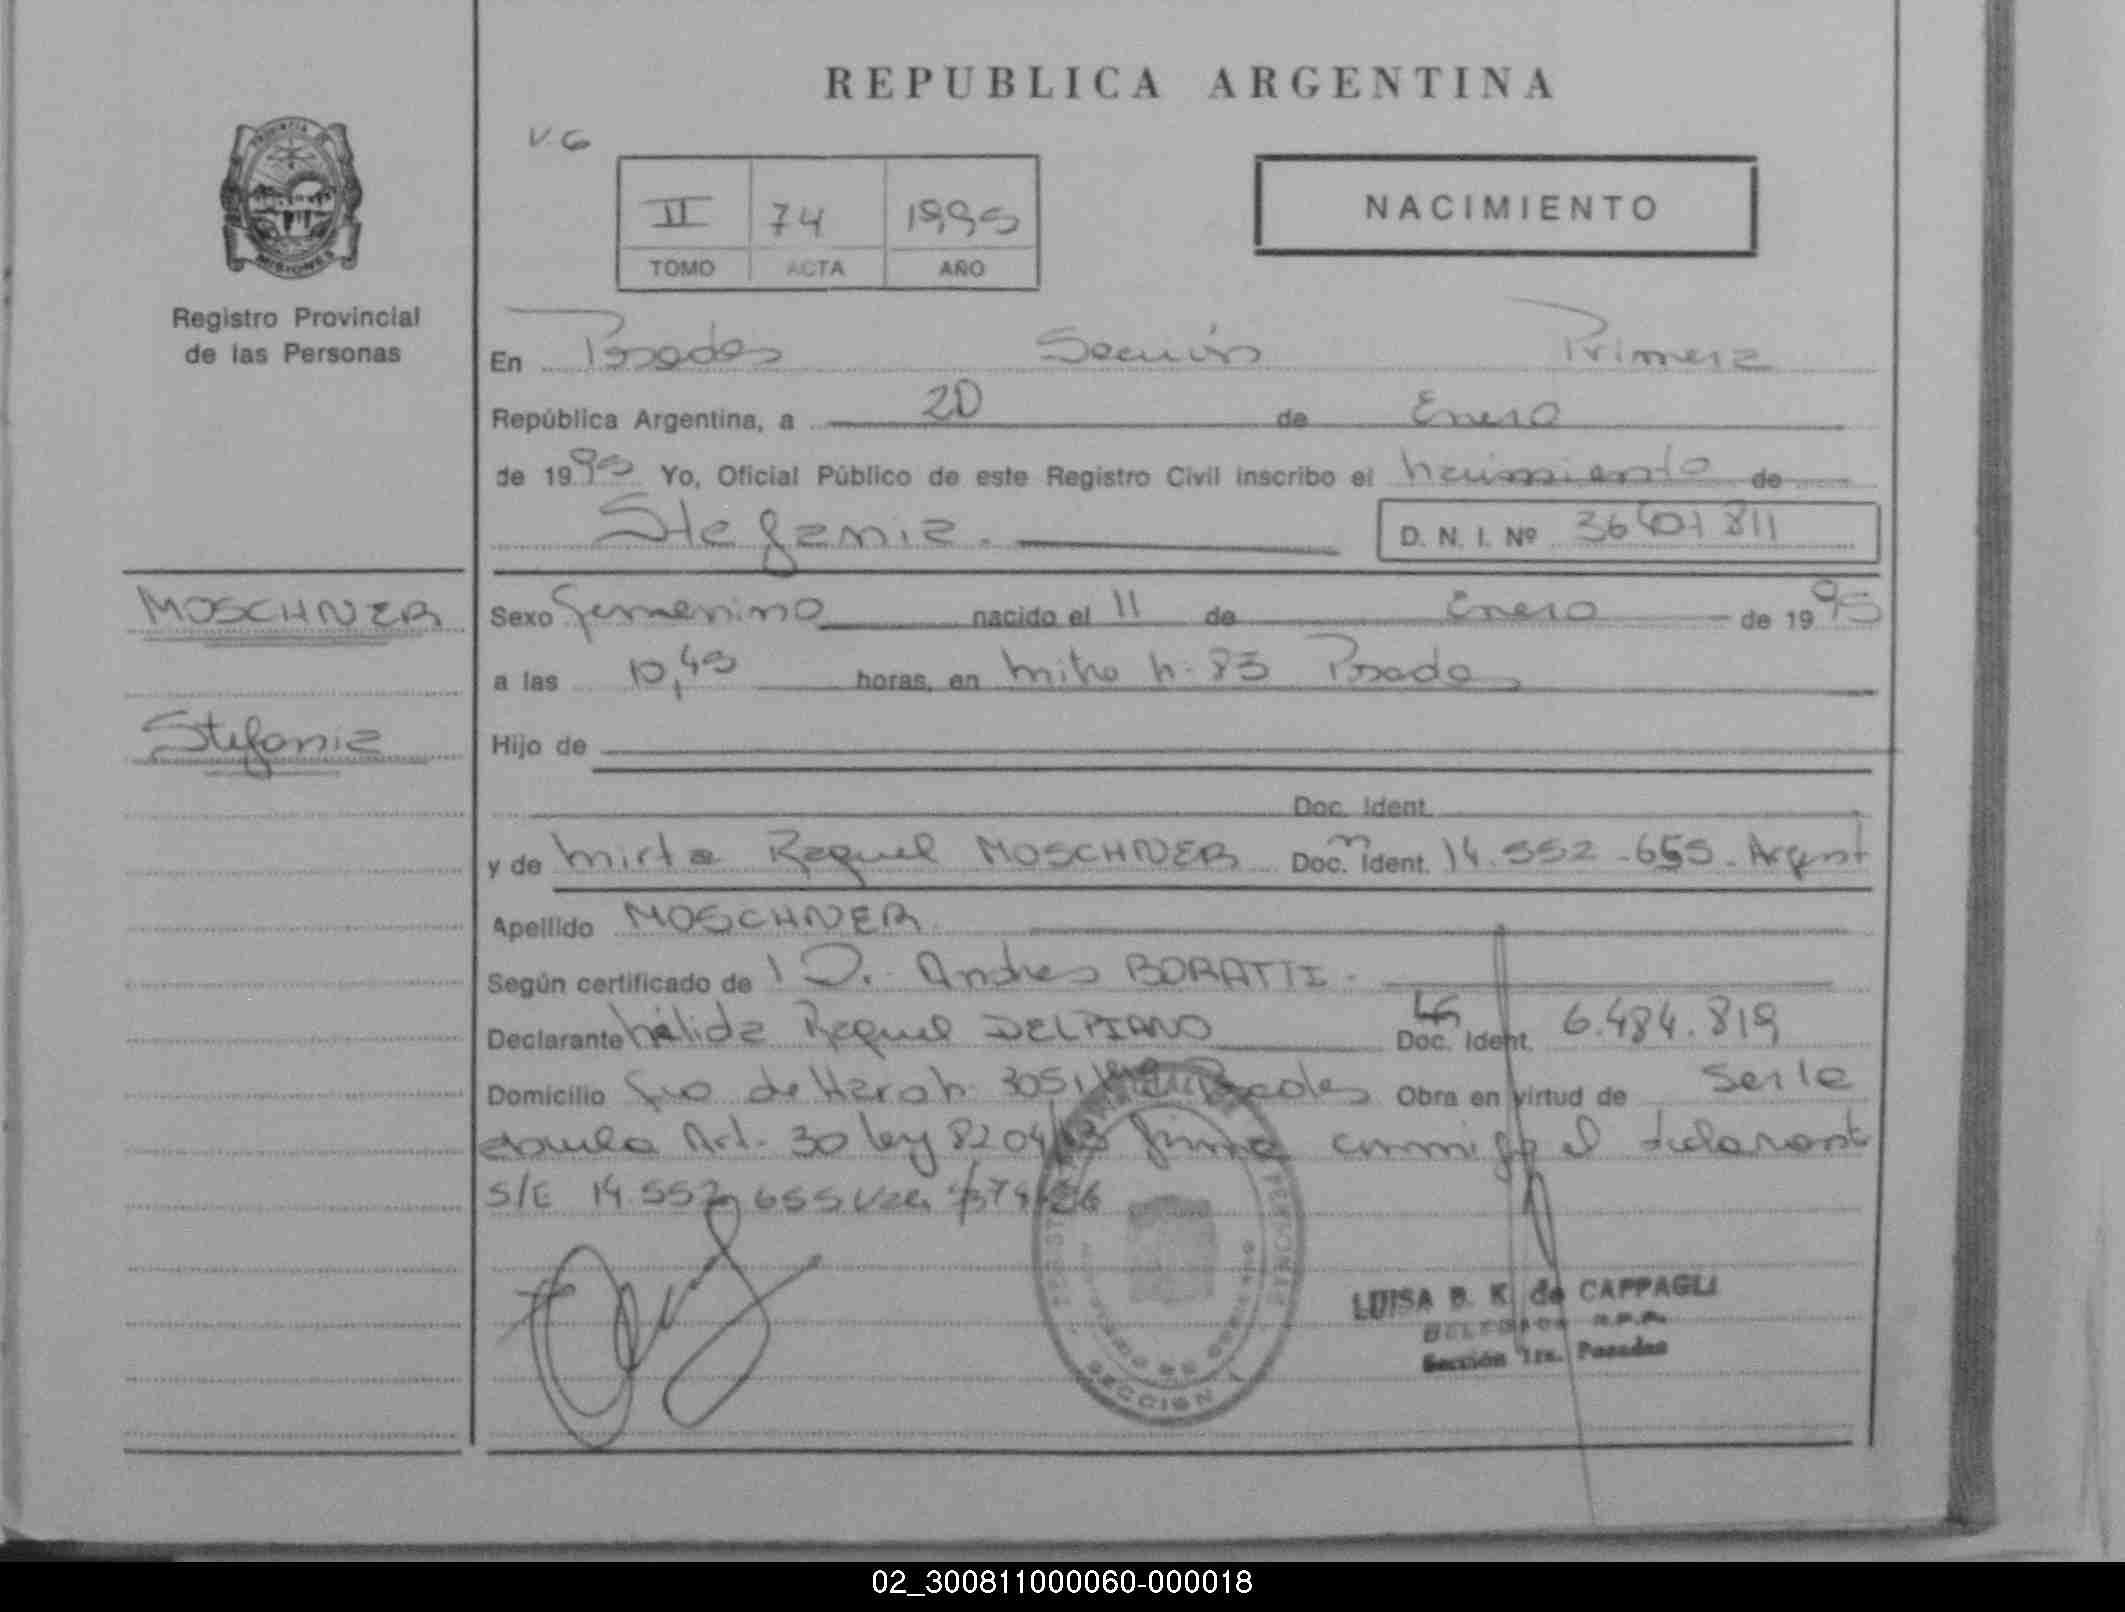 REPUBLICA ARGENTINA
V.G
II 74 1995
TOMO ACTA AÑO
NACIMIENTO
PROVINCIA
MISIONES
Registro Provincial
de las Personas
En Posadas Sección Primera
República Argentina, a 20 de Enero
de 1995 Yo, Oficial Público de este Registro Civil inscribo el nacimiento de
Stefania.
D. N. I. Nº 811
MOSCHNER
Stefania
Sexo femenino nacido el 11 de Enero de 1995
a las 10,45 horas, en Mitre N. 83 Posadas
Hijo de
Doc. Ident.
y de Mirta Raquel MOSCHNER Doc. Ident. 14.552.655. Argent
Apellido MOSCHNER
Según certificado de D. Andres BORATTI.
Declarante Nélida Raquel DELPIANO Doc. Ident. 6.484.819
Domicilio de Haro N. 3051 Posadas Obra en virtud de ser la
abuela Art. 30 ley 8204/63 firma conmigo el declarante
S/E 14.552.655
SECCION 1
LUISA B. K. de CAPPAGLI
DELEGADA R.P.P.
Sección 1ra. Posadas
02_300811000060-000018